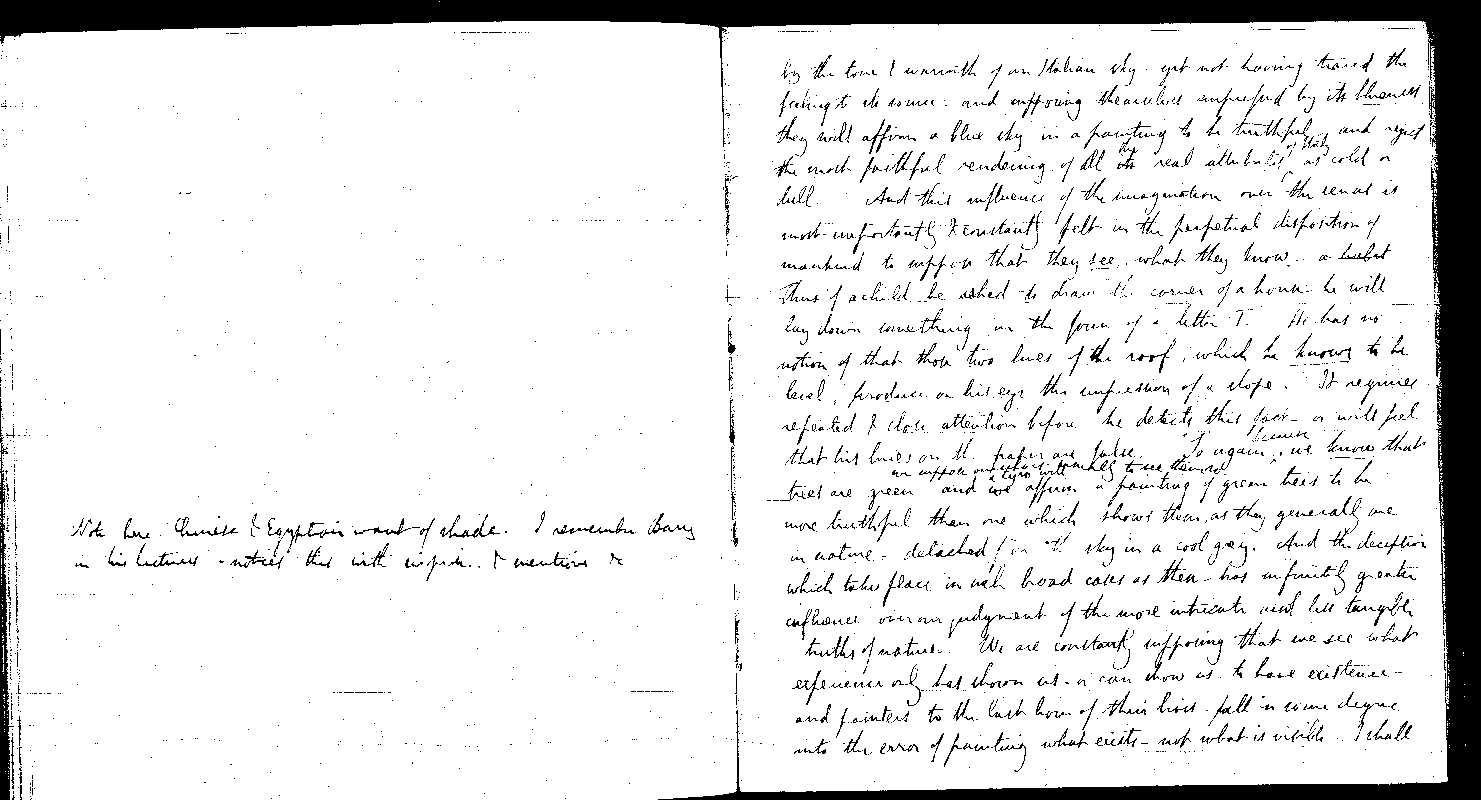 Note here Chinese & Egyptian want of shade. I remember Barry
in his lectures - notices this with surprise. & mentions &c
by the tone & warmth of an Italian sky - yet not having traced the
feeling to its source - and supposing themselves impressed by its blueness
they will affirm a blue sky in a painting to be truthful, and reject
the most faithful rendering of all the real attributes of Italy as cold or
dull. And this influence of the imagination over the senses is
most importantly & constantly felt in the perpetual disposition of
mankind to suppose that they see, what they know.
Thus if a child be asked to draw the corner of a house he will
lay down something in the form of a letter T. He has no
notion of that those two lines of the roof, which he knows to be
level, produce on his eye the impression of a slope. It requires
repeated & close attention before he detects this fact - or will feel
that his lines on the paper are false. So again, because we know that
trees are green we suppose ourselves actually to see them so
and a tyro will affirm a painting of green trees to be
more truthful than one which shows them, as they generally are
in nature - detached from the sky in a cool grey. And the deception
which takes place in such broad cases as these - has infinitely greater
influence over our judgment of the more intricate and less tangible
truths of nature. We are constantly supposing that we see what
experience only has shown us - or can show us to have existence -
and painters to the last hour of their lives - fall in some degree
into the error of painting what exists - not what is visible. I shall